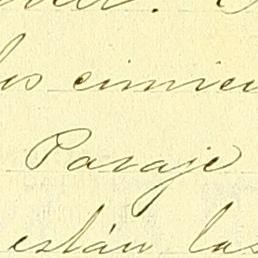 los cimien
Paraje
están las